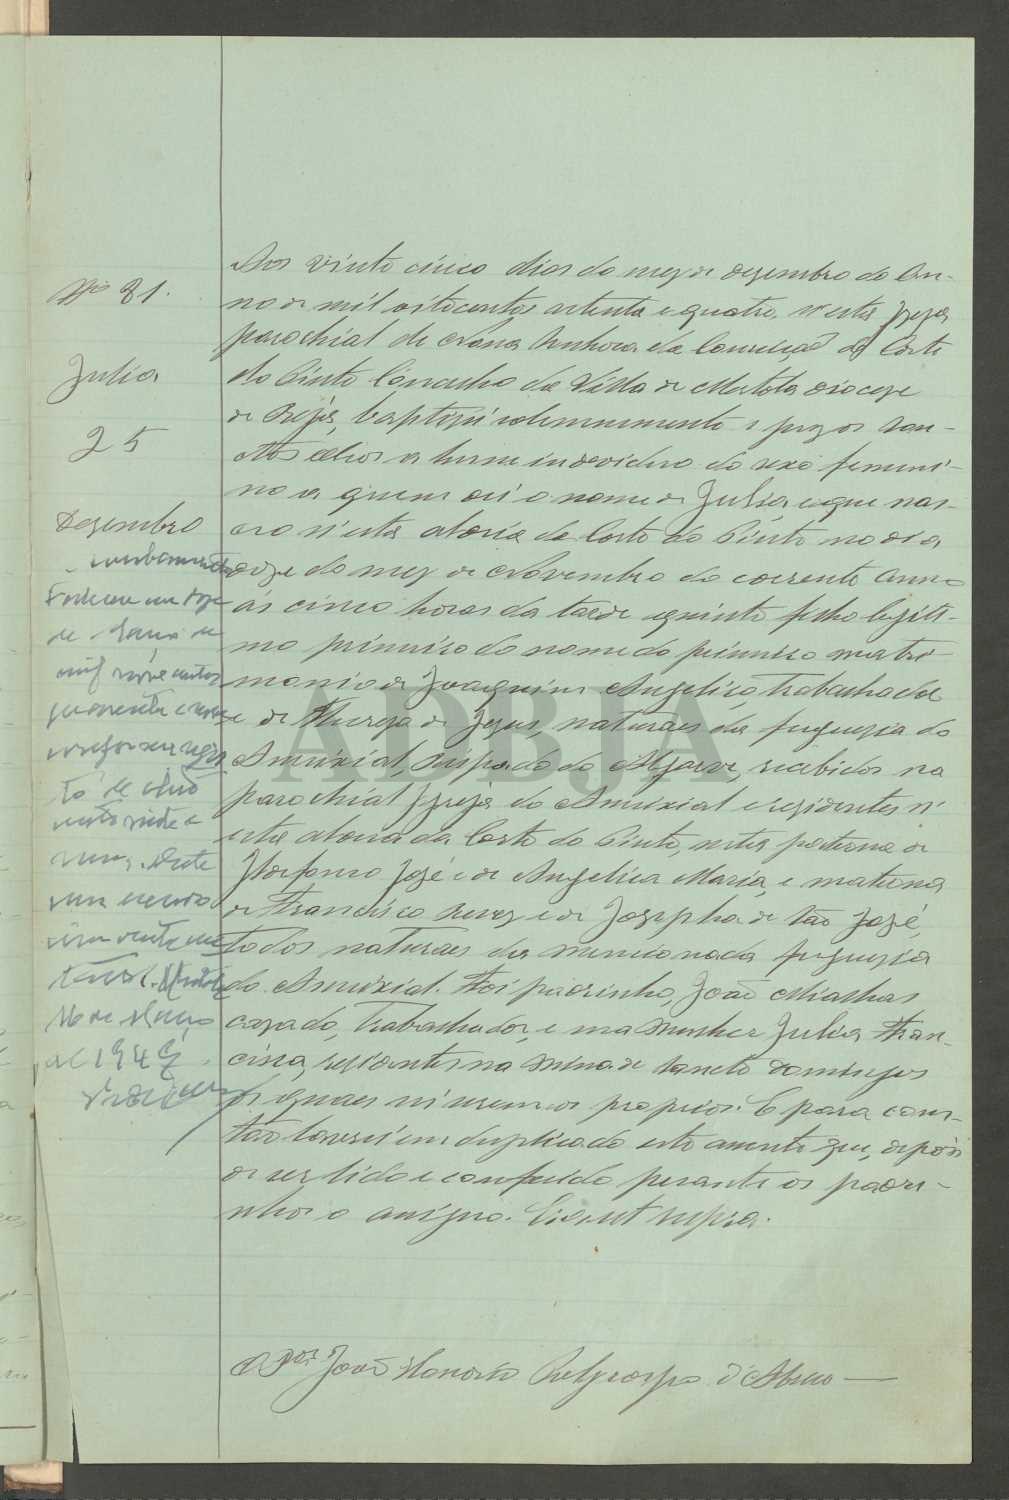 Nº 81.
Julia
25
Dezembro
Averbamento
Faleceu em doze
de Março de
mil novecentos
quarenta e nove
registo
mil
16 de Março
de 1949.
Aos vinte cinco dias do mez de dezembro do An-
no de mil oitocentos oitenta e quatro, n'esta Igreja
parochial de Nossa Senhora da Conceição da Corte
do Pinto Concelho da Villa de Mertola Diocese
de Beja, baptizei solemnemente e puz os San-
tos Oleos a hum individuo do sexo femini-
no a quem dei o nome de Julia e que nas-
ceo n'esta aldeia da Corte do Pinto no dia
doze do mez de Novembro do corrente Anno
ás cinco horas da tarde e quinto filho legiti-
mo primeiro do nome do primeiro matri-
monio de Joaquim Angelico, trabalhador
e de Thereza de Jezus, naturaes da freguezia do
Ameixial, Bispado do Algarve, recebidos na
parochial Igreja do Ameixial e rezidentes n'
esta aldeia da Corte do Pinto, neta paterna de
Ildefonso José e de Angelica Maria, e materna
de Francisco Neves e de Josepha de São José,
todos naturaes da mencionada freguezia
do Ameixial. Foi padrinho, João Mialhas
cazado, trabalhador, e sua mulher Julia Fran-
cisca, rezidentes na Mina de Sancto Domingos
os quaes sei serem os proprios. E para cons-
tar lavrei em duplicado este assento que, depois
de ser lido e conferido perante os padri-
nhos o assigno. Era ut supra.
O Por João Honorio d'Abreu
ADBJA